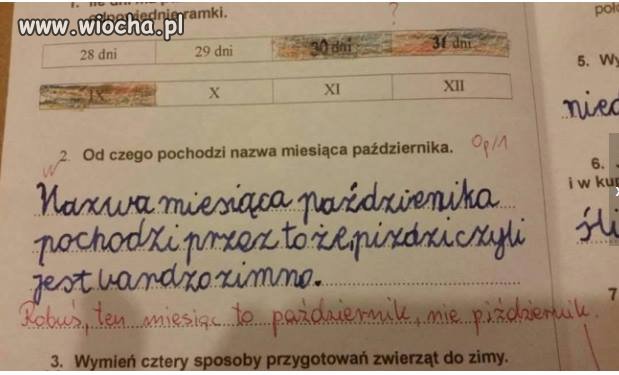 www.wiocha.pl
1. Ile dni ma
odpowiednie ramki.
?
28 dni 29 dni 30 dni 31 dni
IX X XI XII
2. Od czego pochodzi nazwa miesiąca października. 0p/1
Nazwa miesiąca października
pochodzi przez to że, piździ czyli
jest vardzo zimno.
Robuś, ten miesiąc to październik, nie piździernik.
3. Wymień cztery sposoby przygotowań zwierząt do zimy.
5. Wy
nied
6.
i w ku
śli
7